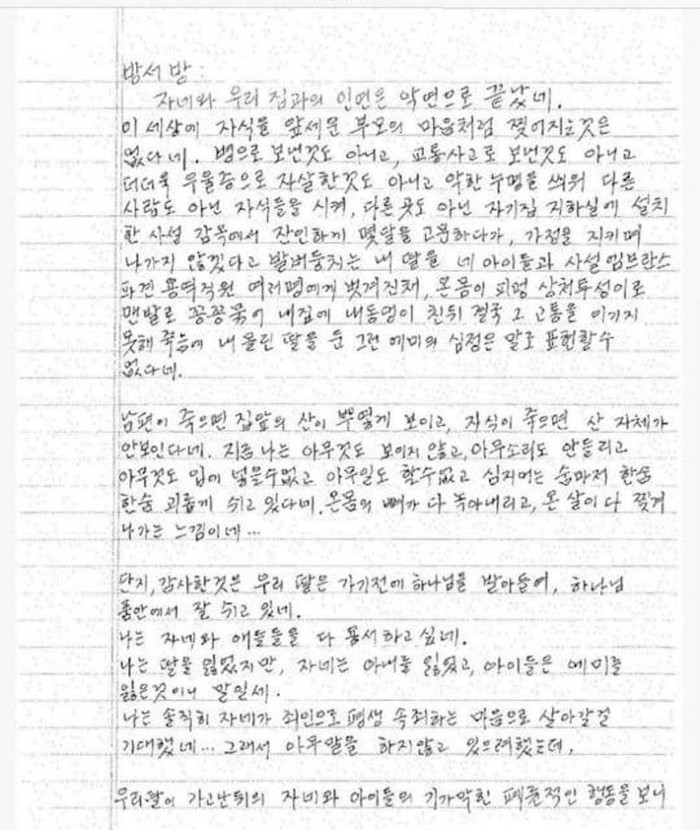 방서방:
자네와 우리 집과의 인연은 악연으로 끝났네.
이 세상에 자식을 앞세운 부모의 마음처럼 찢어지는것은
없다네. 병으로 보낸것도 아니고, 교통사고로 보낸것도 아니고
더더욱 우울증으로 자살한것도 아니고 악한 누명을 씌워 다른
사람도 아닌 자식들을 시켜, 다른곳도 아닌 자기집 지하실에 설치
한 사설 감옥에서 잔인하게 몇달을 고문하다가, 가정을 지키며
나가지 않겠다고 발버둥치는 내 딸을 네 아이들과 사설엠브란스
파견 용역직원 여러명에게 벗겨진채, 온몸이 피멍 상처투성이로
맨발로 꽁꽁묶어 내집에 내동댕이 친뒤 결국 그 고통을 이기지
못해 죽음에 내 몰린 딸을 둔 그런 에미의 심정은 말로 표현할수
없다네.
남편이 죽으면 집앞의 산이 뿌옇게 보이고, 자식이 죽으면 산 자체가
안보인다네. 지금 나는 아무것도 보이지 않고, 아무소리도 안들리고
아무것도 입에 넣을수없고 아무일도 할수없고 심지어는 숨마저 한숨
한숨 괴롭게 쉬고 있다네. 온몸의 뼈가 다 녹아내리고, 온 살이 다 찢겨
나가는 느낌이네…
단지, 감사한것은 우리 딸은 가기전에 하나님을 받아들여, 하나님
품안에서 잘 쉬고 있네.
나는 자네와 애들들을 다 용서하고 싶네.
나는 딸을 잃었지만, 자네는 아내를 잃었고, 아이들은 에미를
잃은것이니 말일세.
나는 솔직히 자네가 죄인으로 평생 속죄하는 마음으로 살아갈걸
기대했네… 그래서 아무말을 하지않고 있으려했는데,
우리딸이 가고난뒤의 자네와 아이들의 기가막힌 패륜적인 행동을 보니